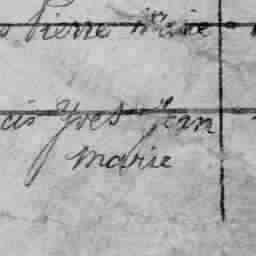 s Pierre Marie
cis Yves Jean
Marie